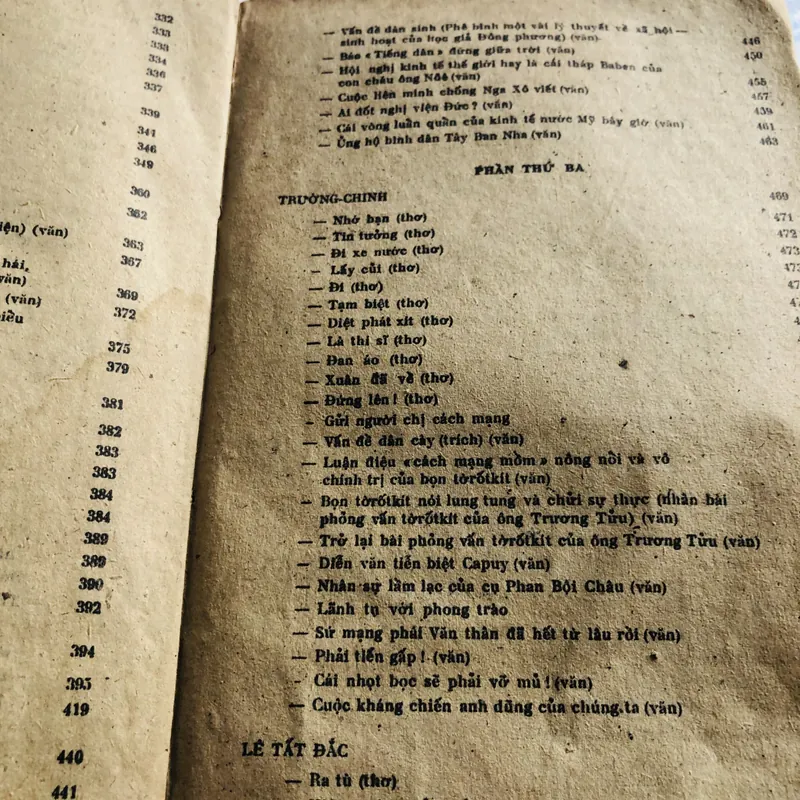 332
333
333
334
336
337
339
341
346
349
360
362
iện) (văn)
363
hải,
367
văn)
369
(văn)
372
iều
375
379
381
382
383
383
384
384
389
389
390
392
394
395
419
440
441
— Vấn đề dân sinh (Phê bình một vài lý thuyết về xã hội —
sinh hoạt của học giả Đông phương) (văn) 446
— Báo «Tiếng dân» đứng giữa trời (văn) 450
— Hội nghị kinh tế thế giới hay là cái tháp Baben của
con cháu ông Nôê (văn) 455
— Cuộc liên minh chống Nga Xô viết (văn) 457
— Ai đốt nghị viện Đức? (văn) 459
— Cái vòng luẩn quẩn của kinh tế nước Mỹ bây giờ (văn) 461
— Ủng hộ bình dân Tây Ban Nha (văn) 463
PHẦN THỨ BA
TRƯỜNG-CHINH 469
— Nhớ bạn (thơ) 471
— Tin tưởng (thơ) 472
— Đi xe nước (thơ) 473
— Lấy củi (thơ) 473
— Đi (thơ)
— Tạm biệt (thơ)
— Diệt phát xít (thơ)
— Là thi sĩ (thơ)
— Đan áo (thơ)
— Xuân đã về (thơ)
— Đứng lên! (thơ)
- Gửi người chị cách mạng
— Vấn đề dân cày (trích) (văn)
— Luận điệu «cách mạng mồm» nông nổi và vô
chính trị của bọn tờrốtkít (văn)
— Bọn tờrốtkít nói lung tung và chửi sự thực (nhân bài
phỏng vấn tờrốtkít của ông Trương Tửu) (văn)
— Trở lại bài phỏng vấn tờrốtkít của ông Trương Tửu (văn)
— Diễn văn tiễn biệt Capuy (văn)
— Nhân sự lầm lạc của cụ Phan Bội Châu (văn)
— Lãnh tụ với phong trào
— Sứ mạng phái Văn thân đã hết từ lâu rồi (văn)
— Phải tiến gấp! (văn)
- Cái nhọt bọc sẽ phải vỡ mủ! (văn)
— Cuộc kháng chiến anh dũng của chúng ta (văn)
LÊ TẤT ĐẮC
— Ra tù (thơ)